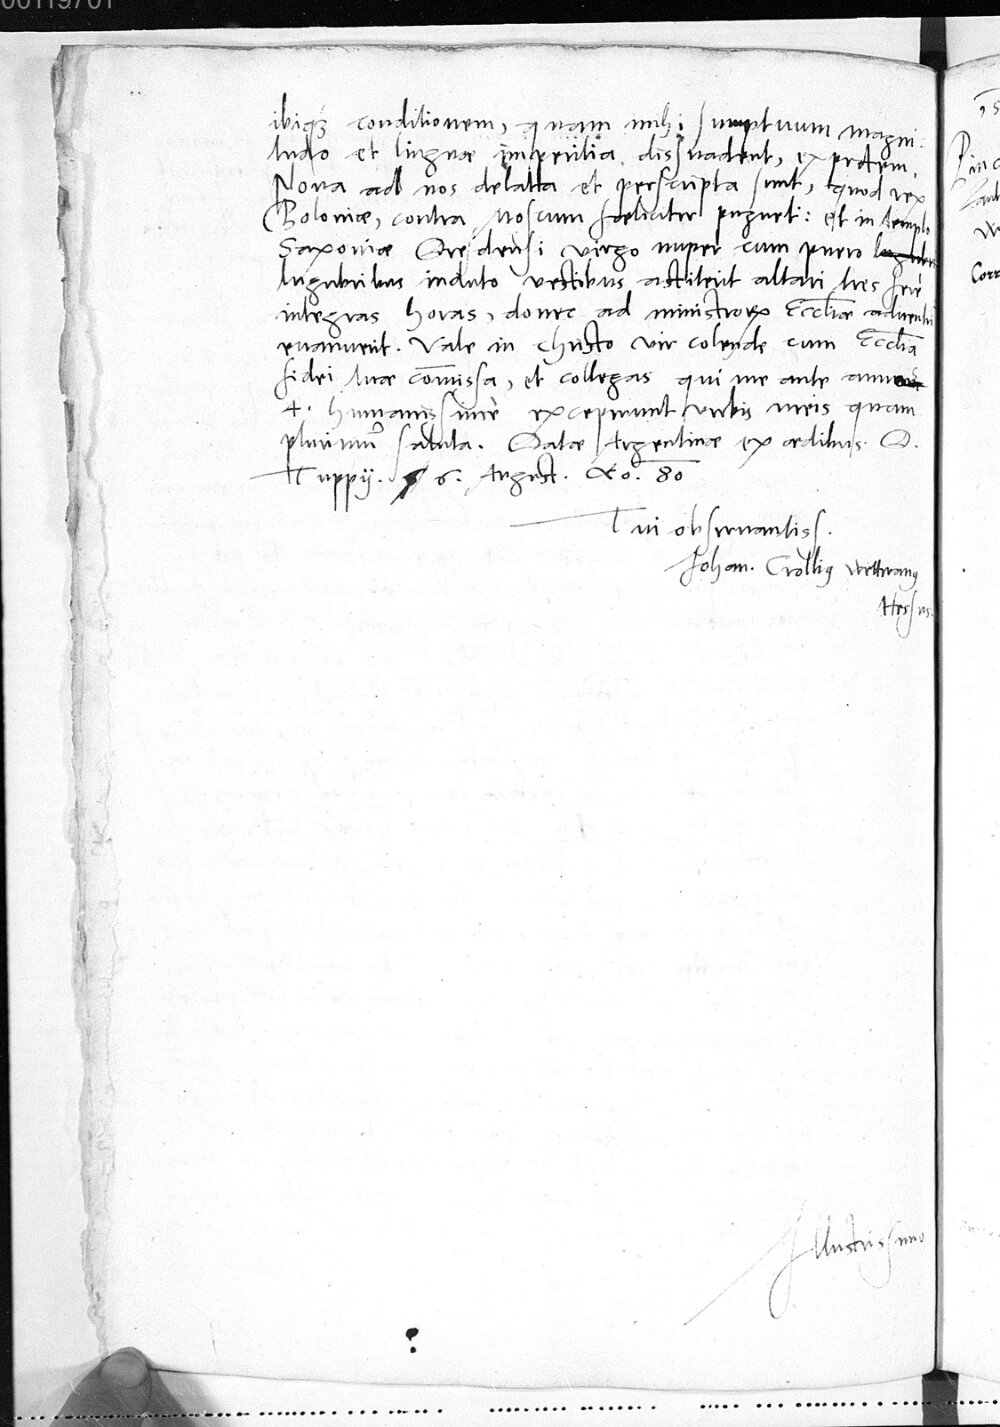 00119701
ibiq₃ conditionem, quam mihi sumptuum magni-
tudo et linguæ imperitia dissuadent, expectem.
Nova ad nos delata et perscripta sunt, quod rex
Poloniæ, contra Moscum fæliciter pugnet: et in templo
Saxoniæ Dresdensi virgo nuper cum puero
lugubribus induto vestibus astiterit altari tres ferè
integras horas, donec ad ministrorū Eccliæ adventū
evanuerit. Vale in Christo vir colende cum Ecclia
fidei tuæ comissa, et collegas qui me ante annos
4. humanissimè exceperunt verbis meis quam
plurimū saluta. Datæ Argentinæ ex ædibus D.
Pappij. 6. August. Ao. 80
Tui observantiss.
Johan. Crollius Wetteranus
Hessus.
Illustrissimo